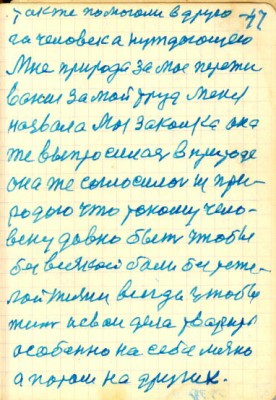 также помогали в друго- 47
га человека нуждающего
Мне природа за мое пережи
вание за мой труд меня
назвала Моя закалка она
же выпросилась в природе
она же согласилась с при-
родою что такому чело-
веку давно быть чтобы
без всякой боли без тяже-
лой жизни всегда чтобы
жить и свои дела творить
особенно на себе
а потом на других.